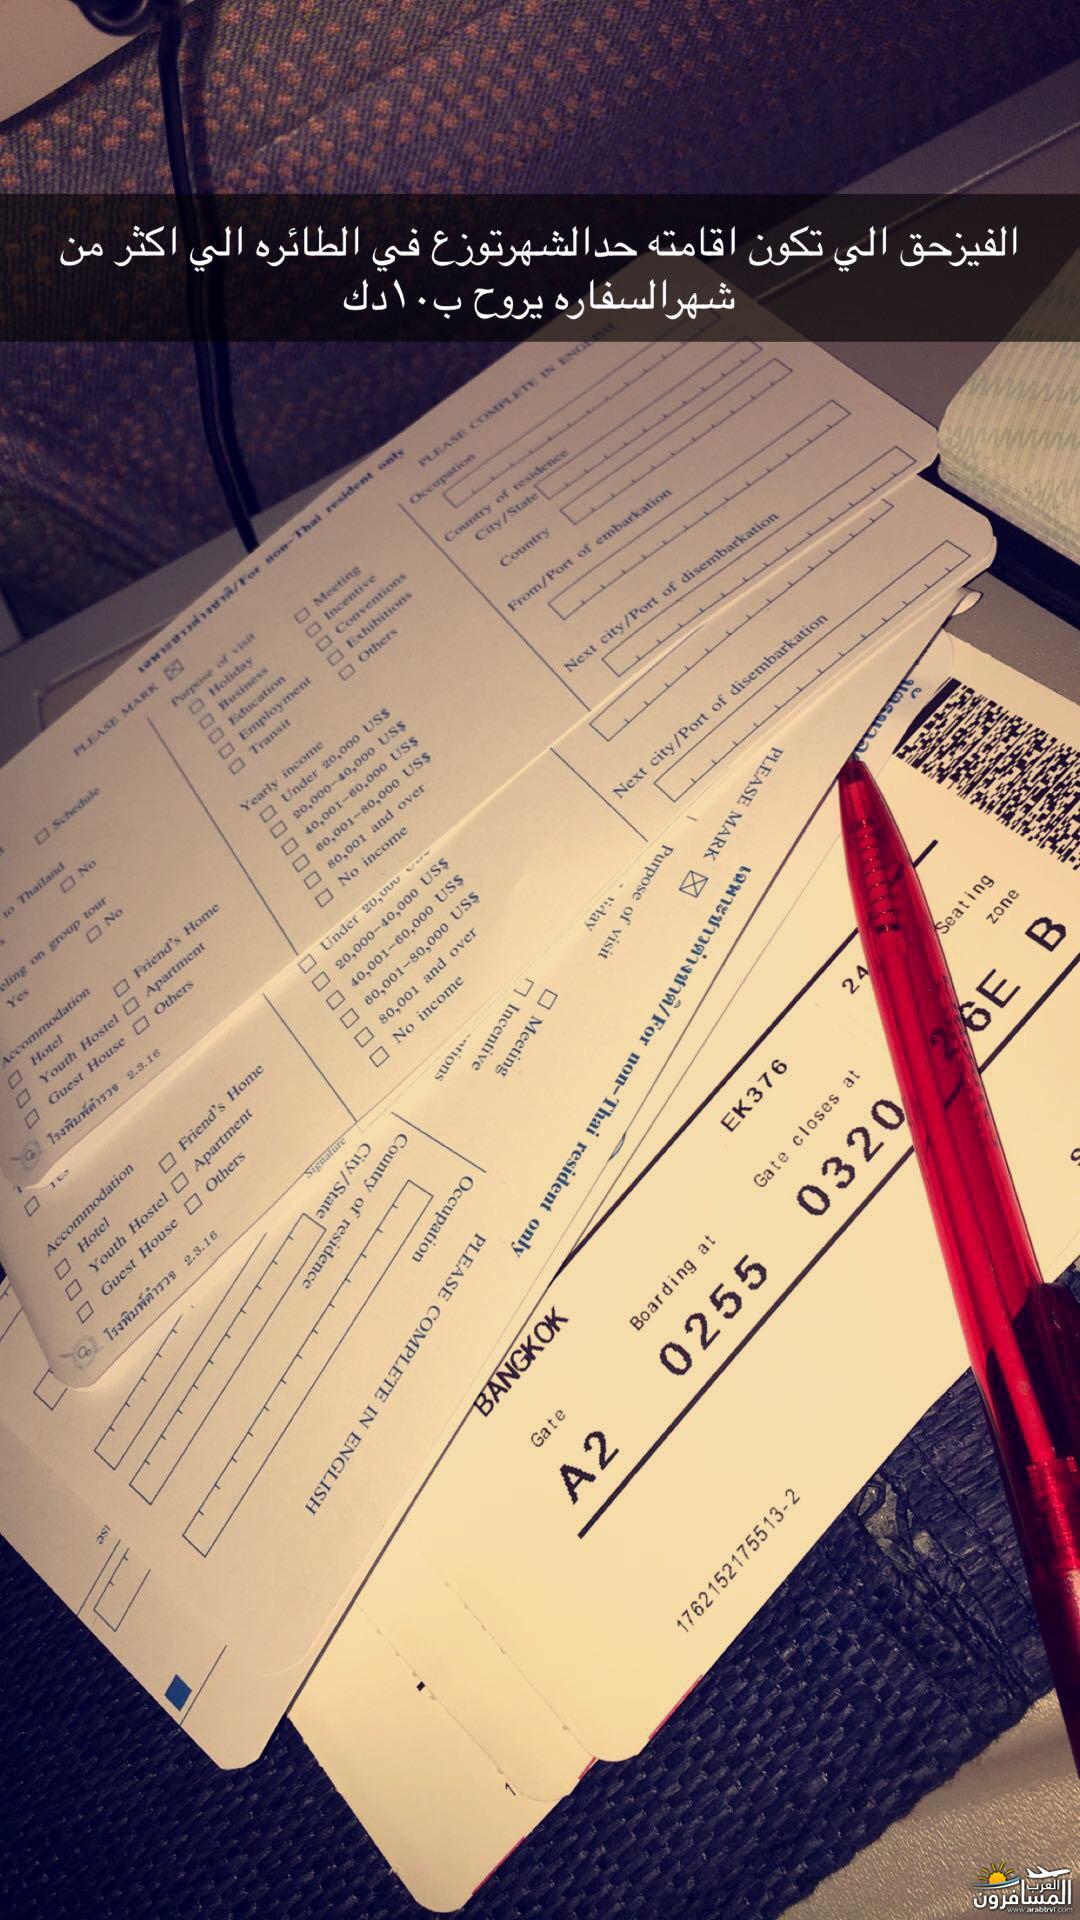 الفيزحق الي تكون اقامته حدالشهرتوزع في الطائره الي اكثر من
شهرالسفاره يروح ب١٠دك
เฉพาะชาวต่างชาติ/For non-Thai resident only
PLEASE MARK ☒
PLEASE COMPLETE IN ENGLISH
Schedule
to Thailand
No
eling on group tour
Yes
No
Accommodation
Hotel
Youth Hostel
Guest House
Friend's Home
Apartment
Others
โรงพิมพ์ตำรวจ 2.3.16
Purpose of visit
Holiday
Business
Education
Employment
Transit
Meeting
Incentive
Conventions
Exhibitions
Others
Yearly income
Under 20,000 US$
20,000-40,000 US$
40,001-60,000 US$
60,001-80,000 US$
80,001 and over
No income
Occupation
Country of residence
City/State
Country
From/Port of embarkation
Next city/Port of disembarkation
Under 20,000
20,000-40,000 US$
40,001-60,000 US$
60,001-80,000 US$
80,001 and over
No income
Next city/Port of disembarkation
Accommodation
Hotel
Youth Hostel
Guest House
Friend's Home
Apartment
Others
โรงพิมพ์ตำรวจ 2.3.16
เฉพาะชาวต่างชาติ/For non-Thai resident only
PLEASE MARK ☒
Purpose of visit
Meeting
Incentive
PLEASE COMPLETE IN ENGLISH
Occupation
Country of residence
City/State
Signature
Seating
zone
26E B
EK376
24
BANGKOK
Gate
Boarding at
Gate closes at
A2 0255 0320
1762152175513-2
1
العرب
المسافرون
www.arabtrvl.com